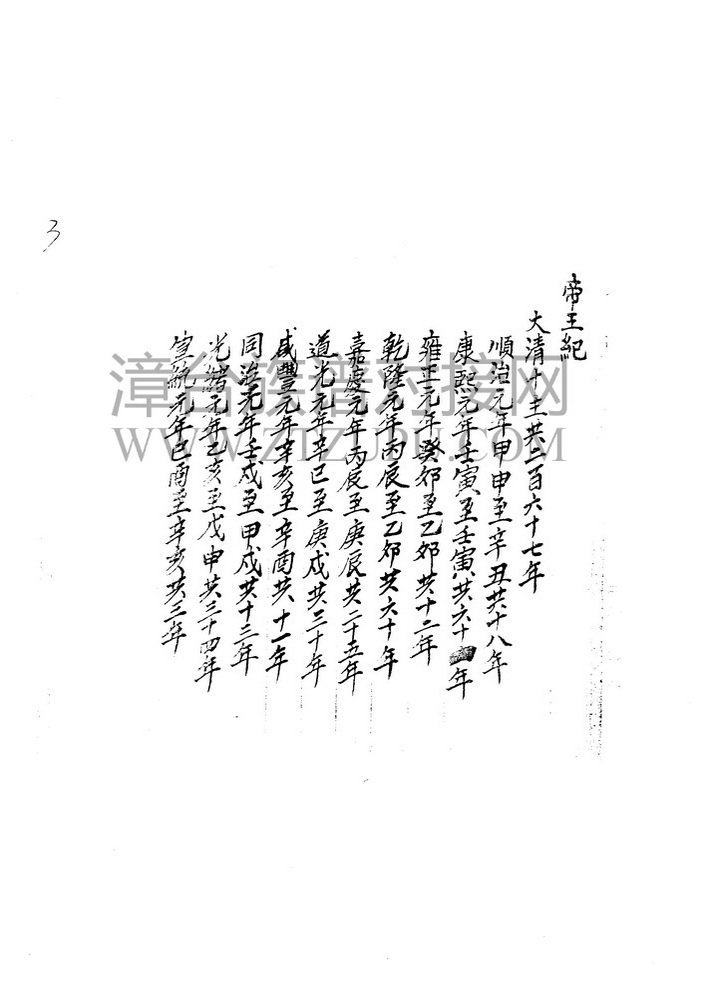 3
帝王紀
大清十主共二百六十七年
順治元年甲申至辛丑共十八年
康熙元年壬寅至壬寅共六十年
雍正元年癸卯至乙卯共十二年
乾隆元年丙辰至乙卯共六十年
嘉慶元年丙辰至庚辰共二十五年
道光元年辛巳至庚戍共三十年
咸豐元年辛亥至辛酉共十一年
同治元年壬戍至甲戍共十三年
光緒元年乙亥至戊申共三十四年
宣統元年己酉至辛亥共三年
漳台族谱对接网
WWW.ZTZUPU.COM